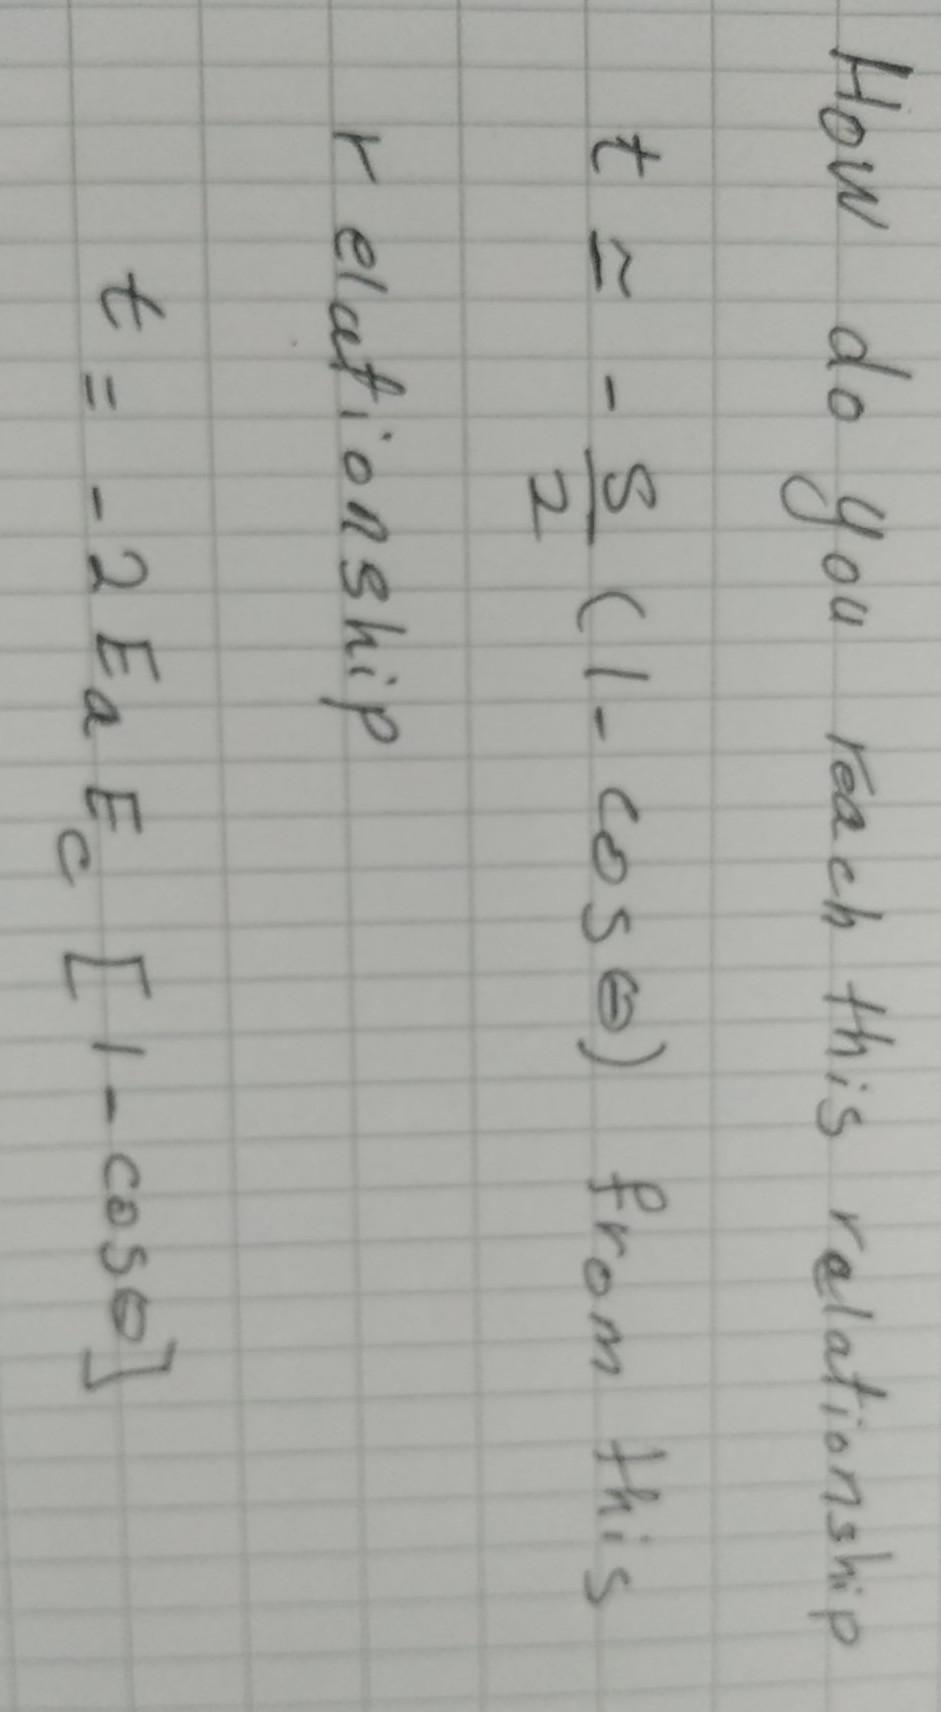 How do you reach this relationship
t ≃ - S/2 (1 - cosθ) from this
relationship
t = -2 E_a E_c [1 - cosθ]